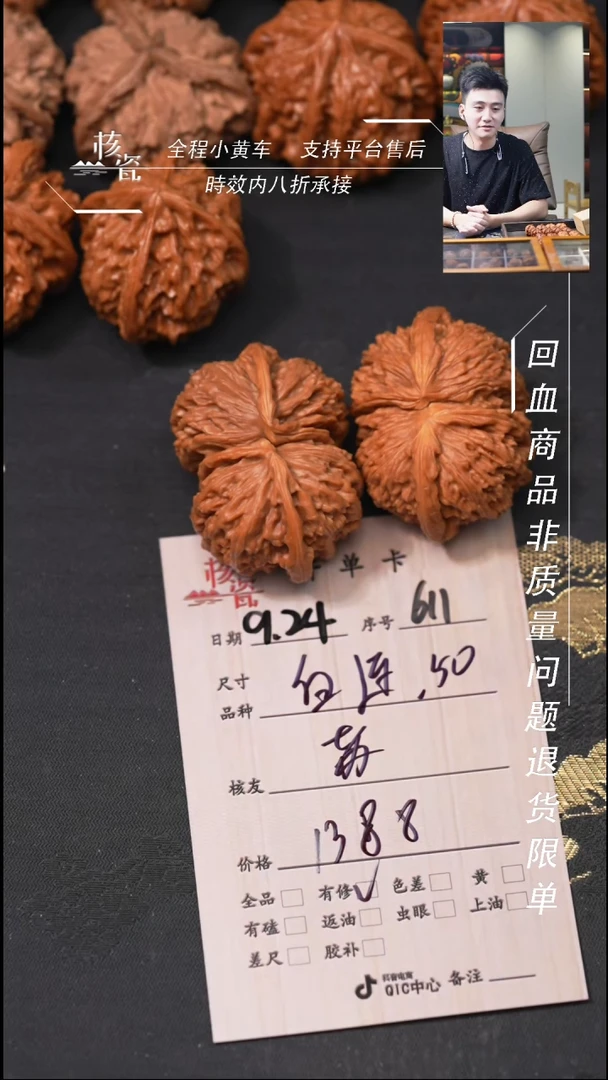 核瓷
全程小黄车 支持平台售后
時效内八折承接
回血商品非质量问题退货限单
核瓷 单卡
日期 9.24 序号 611
尺寸
品种 白连.50
核友
价格 1388
全品 有修 √ 色差 黄
有磕 返油 虫眼 上油
差尺 胶补
抖音电商
QIC中心 备注